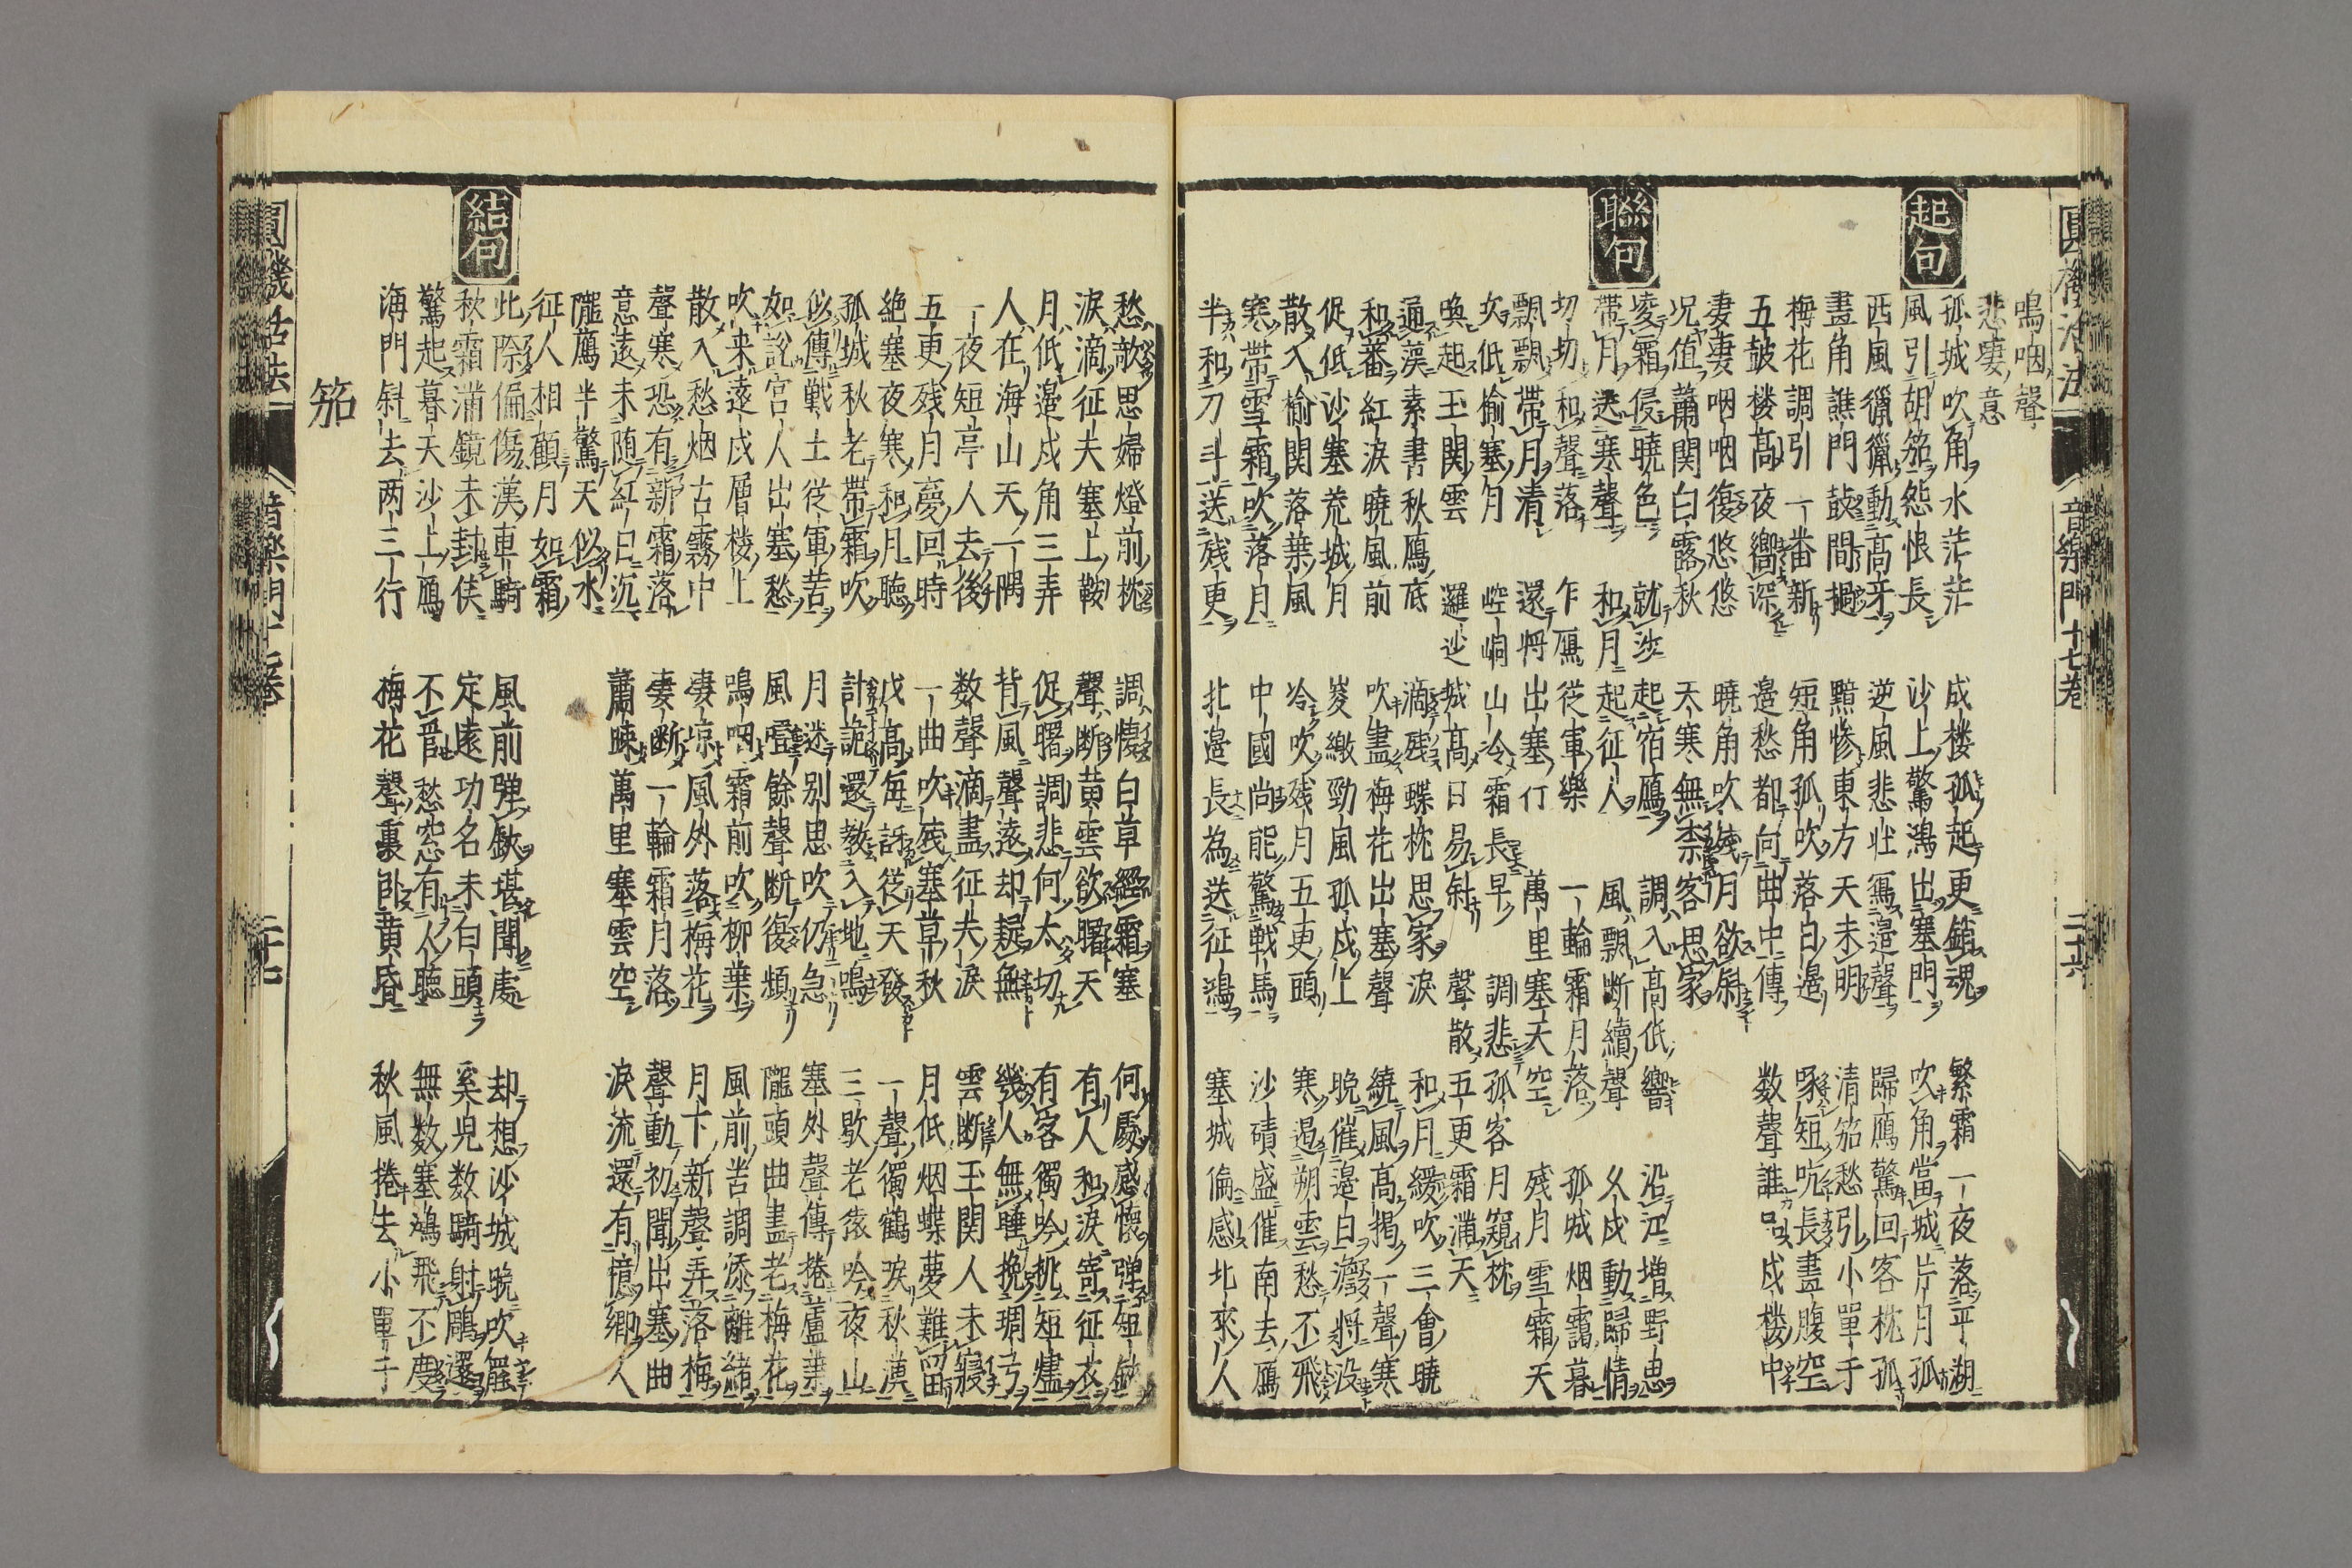 圓機活法 音樂門十七卷 二十六
鳴咽聲
悲凄意
起句
孤城吹角水茫茫 戍楼孤起更銷魂 繁霜一夜落平湖
風引胡笳怨恨長 沙上驚鴻出塞門 吹角當城片月孤
西風獵獵動高牙 逆風悲壮寫邉聲 歸鴈驚回客枕孤
畫角譙門鼓間撾 黯惨東方天未明 清笳愁引小單于
梅花調引一番新 短角孤吹落白邉 啄短吭長盡腹空
五鼓楼高夜嚮深 邉愁都向曲中傳 数聲誰品戍楼中
凄凄咽咽復悠悠 曉角吹残月欲扁
况值蕭関白露秋 天寒無禁客思家
聯句
凌霜侵曉色 就沙起宿鴈 調入高低響 沿江増野思
帶月送寒聲 和月起征人 風飄断續聲 夂戍動歸情
切切和聲落 乍鴈従軍樂 一輪霜月落 孤城烟靄暮
飄飄帶月清 還将出塞仃 萬里塞天空 残月雪霜天
低榆塞月 崆峒山令霜長早 調悲孤客月窺枕
喚起玉関雲 邏沙城高日易斜 聲散五更霜滿天
通漢素書秋鴈底 滴残蝶枕思家淚 和月緩吹三會曉
和番紅淚曉風前 吹盡梅花出塞聲 繞風高掲一聲寒
促低沙塞荒城月 嵏繳勁風孤戍上 晚催邉日澹将没
散入榆関落葉風 冷吹残月五更頭 寒遏朔雲愁不飛
寒帶雪霜吹落月 中國尚能驚戰馬 沙磧盛催南去鴈
半和刀斗送残更 北邉長為送征鴻 塞城偏感北來人
愁敵思婦燈前枕 調懷白草經霜塞 何處感懷弹短鋏
淚滴征夫塞上鞍 聲断黄雲欲曙天 有人和淚寄征衣
月低邉戍角三弄 促曙調悲何太切 有客獨吟挑短燼
人在海山天一隅 背風聲遠却疑無 幾人無睡挽琱弓
一夜短亭人去後 数聲滴盡征夫淚 雲断玉関人未寢
五更残月夢回時 一曲吹残塞草秋 月低烟蝶夢難留
絶塞夜寒和月聴 戍高毎訝従天發 一聲獨鶴淚秋漢
孤城秋老帶霜吹 計詭還教入地鳴 三歇老猿吟夜山
似傳戦士従軍苦 月迷别思吹仍急 塞外聲傳捲蘆葉
如說宮人出塞愁 風噎餘聲断復頻 隴頭曲盡老梅花
吹来遠戍層楼上 鳴咽霜前吹柳葉 風前苦調添離緒
散入愁烟古霧中 凄凉風外落梅花 月下新聲弄落梅
聲寒恐有新霜落 凄断一輪霜月落 聲動初聞出塞曲
意遠未随紅日沉 蕭踈萬里塞雲空 淚流還有憶郷人
隴鴈半驚天似水
征人相顧月如霜
結句
此際偏傷漢車騎 風前弾鋏堪聞處 却想沙城晩吹罷
秋霜滿鏡未封侯 定遠功名未白頭 奚児数騎射鵰還
驚起暮天沙上鴈 不管愁窓有人聴 無数塞鴻飛不度
海門斜去两三行 梅花聲裏卧黄昏 秋風捲去小單于
笳
圓機活法 音樂門十七卷 二十七